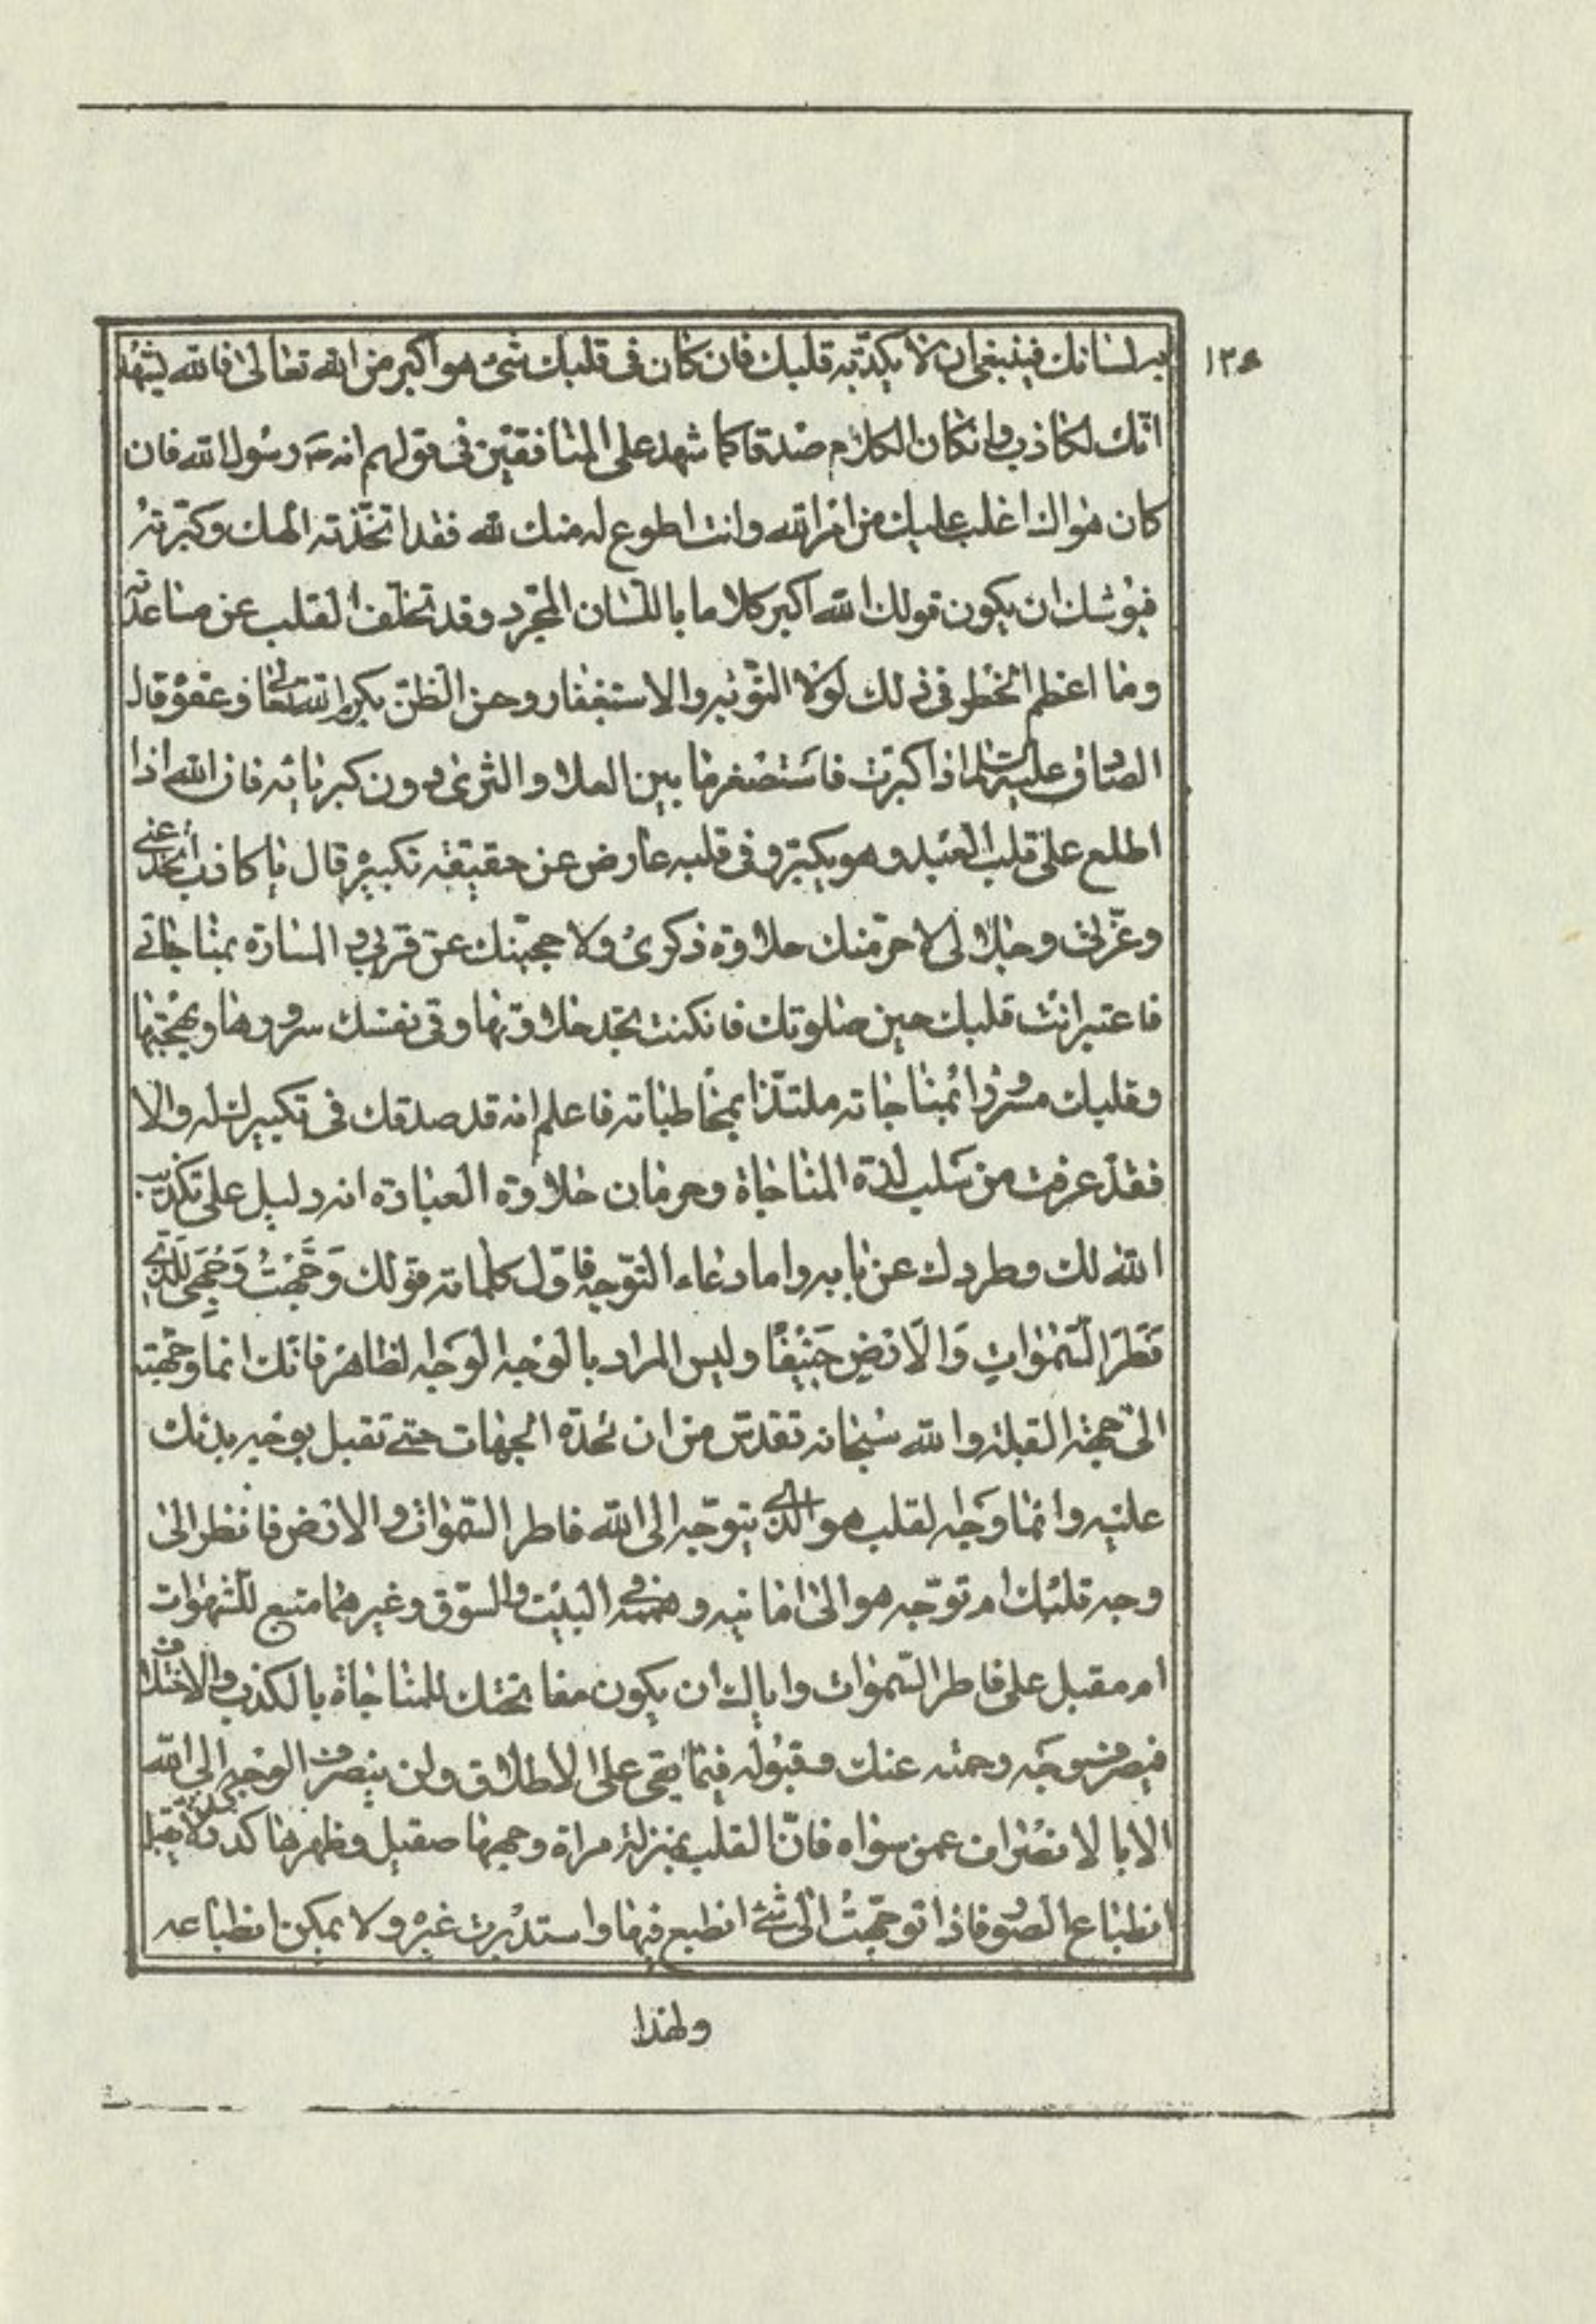 به لسانك فينبغى ان لا يكذّبه قلبك فان كان فى قلبك شئ هو اكبر من الله تعالى فالله يشهد
انّك لكاذب وانكان الكلام صدقا كما شهد على المنافقين فى قولهم انه ص رسول الله فان
كان هواك اغلب عليك من امر الله وانت اطوع له منك لله فقد اتخذته الهك وكبّرته
فيوشك ان يكون قولك الله اكبر كلاما باللسان المجرد وقد تخلّف القلب عن مساعدته
وما اعظم الخطر فى ذلك لولا التّوبة والاستغفار وحسن الظنّ بكرم الله تعالى وعفوه قال
الصادق عليه السلام اذا كبرت فاستصغر ما بين العلا والثرى دون كبريائه فان الله اذا
اطلع على قلب العبد وهو يكبّر وفى قلبه عارض عن حقيقة تكبيره قال يا كاذب أتخدعنى
وعزّتى وجلالى لاحرمنك حلاوة ذكرى ولاحجبنّك عن قربى والمسارّة بمناجاتى
فاعتبر انت قلبك حين صلوتك فانكنت تجد حلاوتها وفى نفسك سرورها وبهجتها
وقلبك مسرورا بمناجاته ملتذّا بمخاطباته فاعلم انه قد صدقك فى تكبيرك له والا
فقد عرفت من سلب لذة المناجاة وحرمان حلاوة العبادة انه دليل على تكذيب
الله لك وطردك عن بابه واما دعاء التوّجه فاوّل كلماته قولك وَجَّهْتُ وَجْهِىَ لِلَّذِى
فَطَرَ السَّمٰوَاتِ وَالْاَرْضَ حَنِيفًا وليس المراد بالوجه الوجه الظاهر فانّك انما وجّهته
الى جهة القبلة والله سبحانه تقدّس من ان تحدّه الجهات حتى تقبل بوجه بدنك
عليه وانما وجه القلب هو الذى يتوجّه الى الله فاطر السّموات والارض فانظر الى
وجه قلبك امتوجّه هو الى امانيه وهمّه فى البيت والسّوق وغيرهما متبع للشهوات
ام مقبل على فاطر السّموات واياك ان يكون مفاتحتك للمناجاة بالكذب والاختلاق
فيصرف وجه رحمته عنك وقبوله فيما بقى على الاطلاق ولن ينصرف الوجه الى الله
الا بالانصراف عمن سواه فانّ القلب بمنزلة مراة وجهها صقيل وظهرها كدر لا يقبل
انطباع الصور فاذا توجّهت الى شئ انطبع فيها واستدبرت غيره ولا يمكن انطباعه
ولهذا